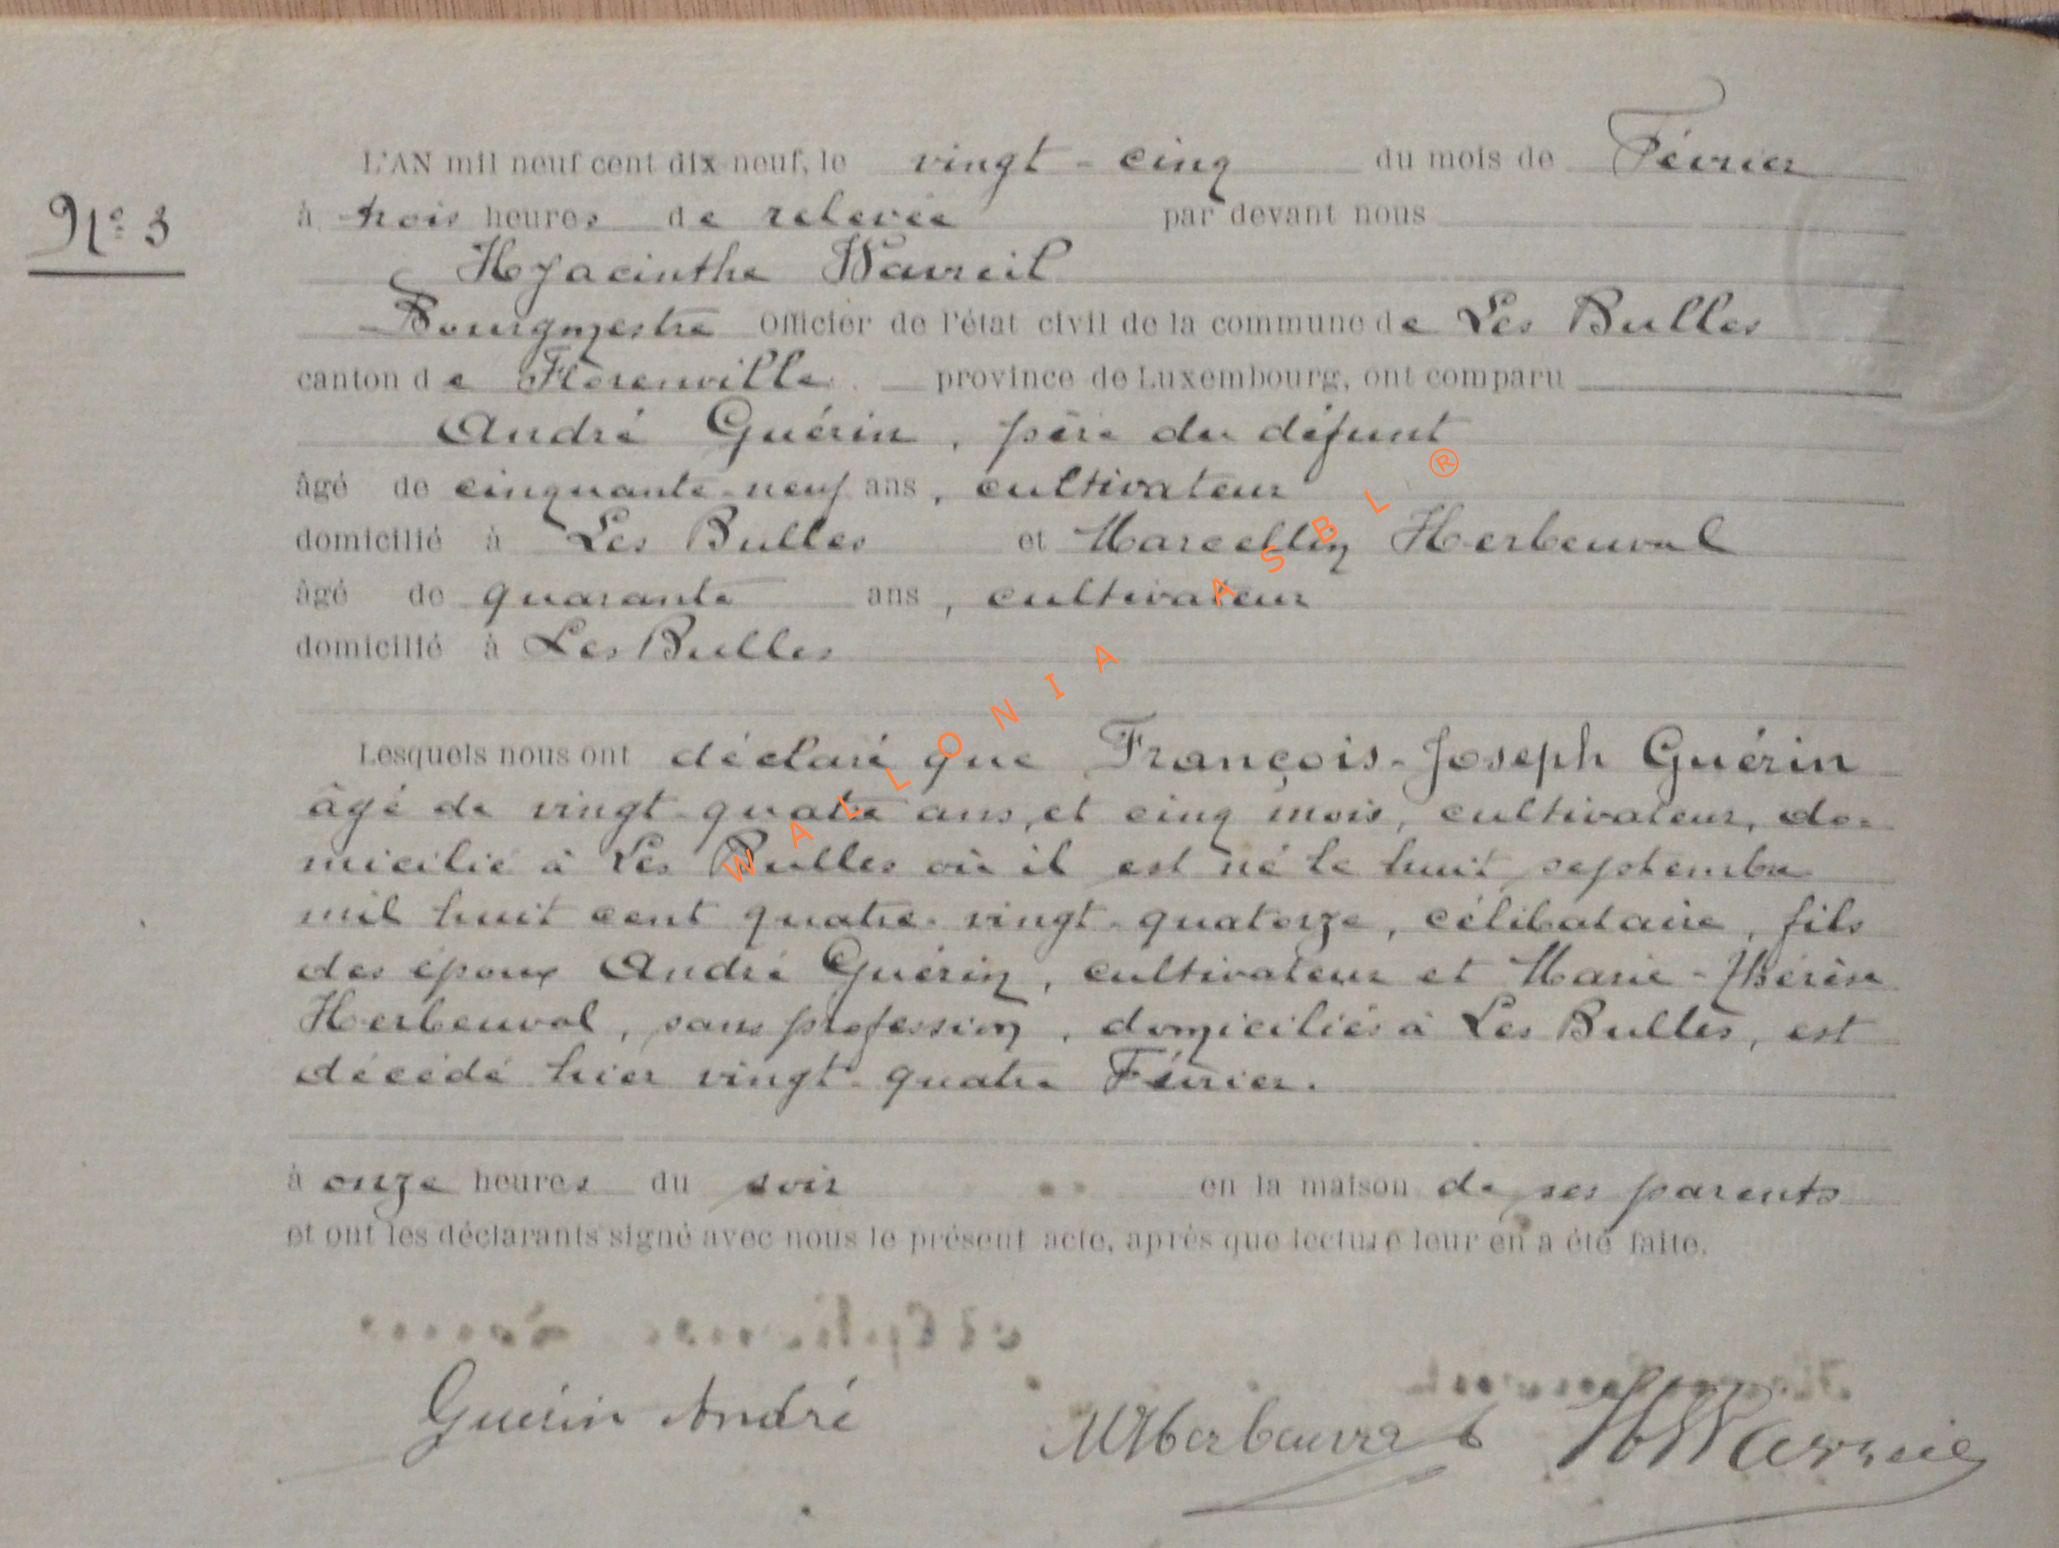 L'AN mil neuf cent dix-neuf, le vingt-cinq du mois de Février
N° 3
à trois heures de relevée par devant nous
Hyacinthe Wavreil
Bourgmestre Officier de l'état civil de la commune de Les Bulles
canton de Florenville province de Luxembourg, ont comparu
André Guérin, père du défunt
âgé de cinquante-neuf ans, cultivateur
domicilié à Les Bulles et Marcellin Herbeuval
âgé de quarante ans, cultivateur
domicilié à Les Bulles
Lesquels nous ont déclaré que François-Joseph Guérin
âgé de vingt-quatre ans, et cinq mois, cultivateur, do-
micilié à Les Bulles où il est né le huit septembre
mil huit cent quatre-vingt-quatorze, célibataire, fils
des époux André Guérin, cultivateur et Marie-Thérèse
Herbeuval, sans profession, domiciliés à Les Bulles, est
décédé hier vingt-quatre Février.
à onze heures du soir en la maison de ses parents
et ont les déclarants signé avec nous le présent acte, après que lecture leur en a été faite.
Guérin André MHerbeuval HWavreil
WALLONIA ASBL ®